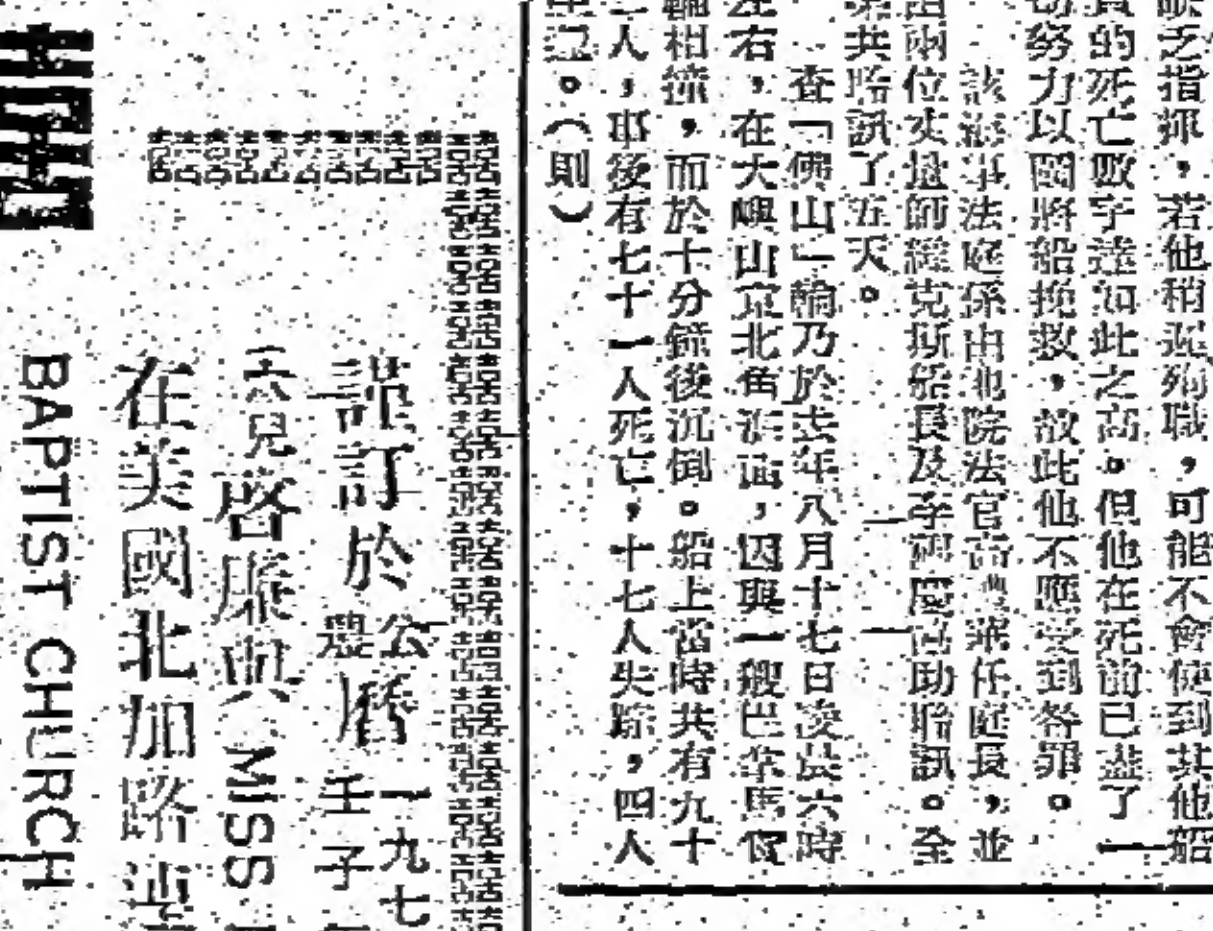 缺乏指揮,若他稍遲殉職,可能不會使到其他船
的死亡數字達如此之高。但他在死前已盡了一
切努力以圖將船挽救,故此他不應受到咎罪。
該海事法庭係由地院法官高 任庭長,並
由兩位丈量師 克斯船長及李 慶 助聆訊。全
案共聆訊了五天。
查「佛山」輪乃於去年八月十七日凌晨六時
左右,在大嶼山東北角海面,因與一艘巴拿馬貨
輪相撞,而於十分鐘後沉倒。船上當時共有九十
二人,事後有七十一人死亡,十七人失踪,四人
。(則)
謹訂於公農曆一九七壬子
六兒啓康與MISS
在美國北加路
BAPTIST CHURCH